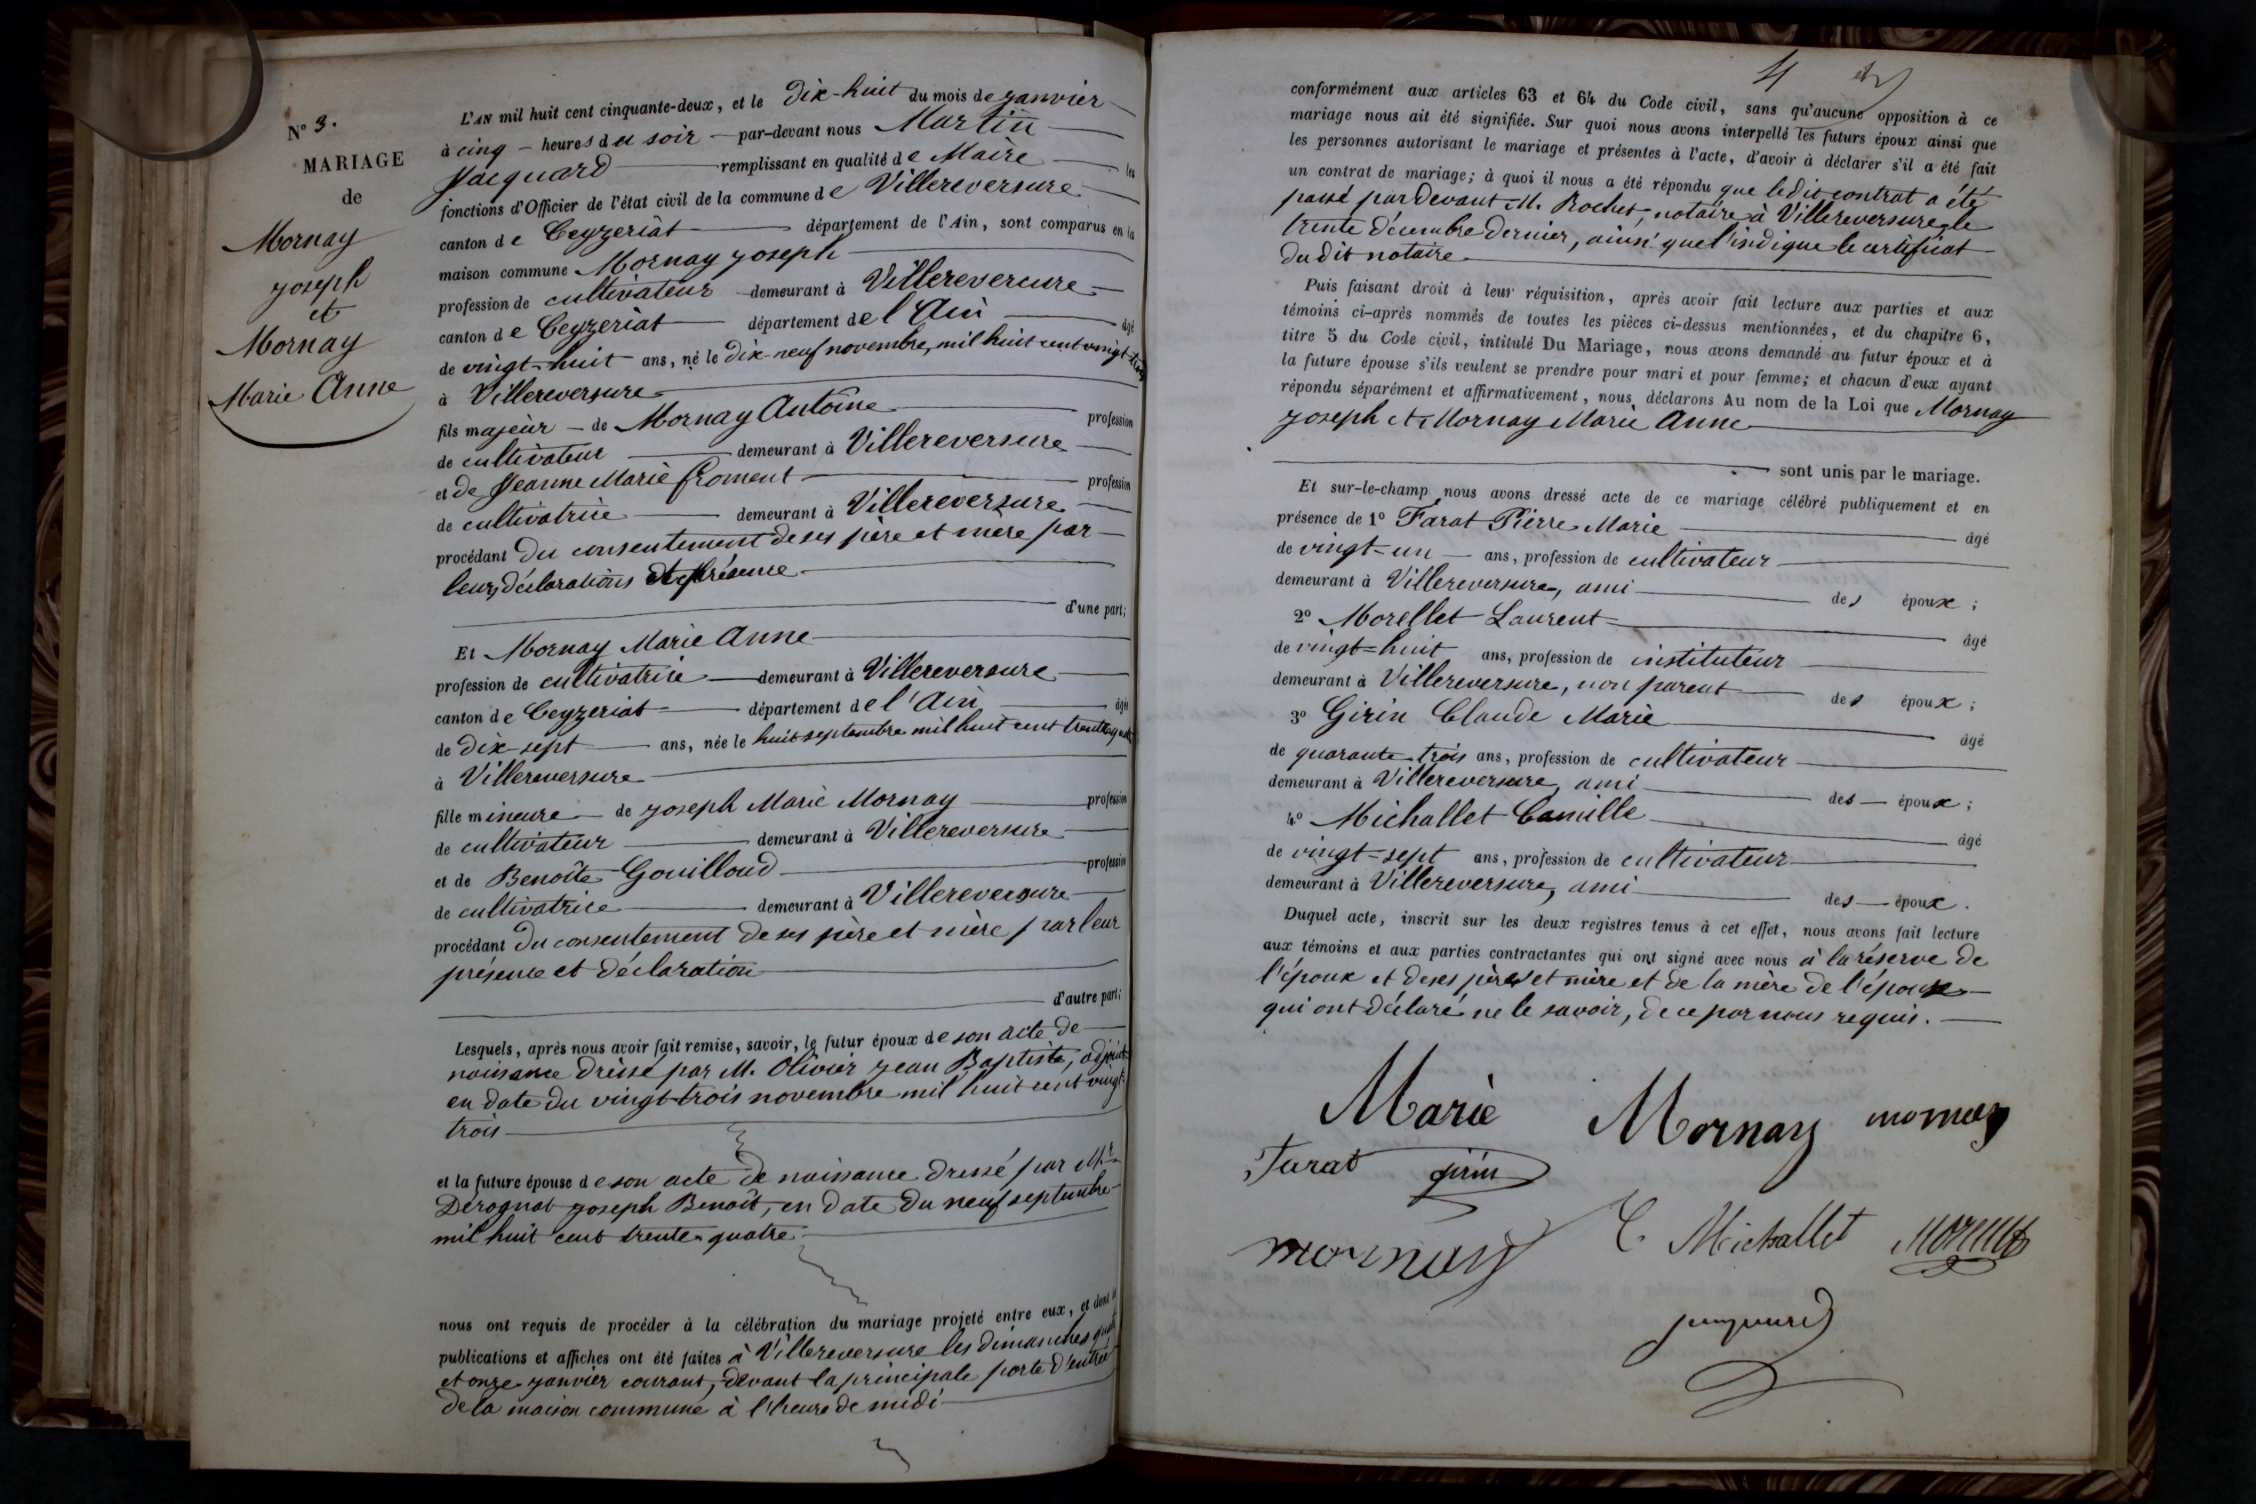 N° 3.
MARIAGE
de
Mornay
joseph
et
Mornay
Marie Anne
L'AN mil huit cent cinquante-deux, et le dix-huit du mois de janvier
à cinq heures du soir par-devant nous Martin
Jacquard remplissant en qualité de Maire les
fonctions d'Officier de l'état civil de la commune de Villereversure
canton de Ceyzeriat département de l'Ain, sont comparus en la
maison commune Mornay joseph
profession de cultivateur demeurant à Villerevercure
canton de Ceyzeriat département de l'Ain âgé
de vingt-huit ans, né le dix-neuf novembre, mil huit cent vingt-trois
à Villereversure
fils majeur de Mornay Antoine profession
de cultivateur demeurant à Villereversure
et de Jeanne Marie Froment profession
de cultivatrice demeurant à Villereversure
procédant du consentement de ses père et mère par
leurs déclarations et présence
d'une part;
Et Mornay Marie Anne
profession de cultivatrice demeurant à Villereversure
canton de Ceyzeriat département de l'Ain âgée
de dix-sept ans, née le huit septembre mil huit cent trente quatre
à Villereversure
fille mineure de joseph Marie Mornay profession
de cultivateur demeurant à Villereversure
et de Benoîte Gouilloud profession
de cultivatrice demeurant à Villereversure
procédant du consentement de ses père et mère par leur
présence et déclaration
d'autre part;
Lesquels, après nous avoir fait remise, savoir, le futur époux de son acte de
naissance dressé par M. Olivier jean Baptiste, adjoint
en date du vingt-trois novembre mil huit cent vingt-
trois
et la future épouse de son acte de naissance dressé par Mr
Derognat joseph Benoît, en date du neuf septembre
mil huit cent trente-quatre
nous ont requis de procéder à la célébration du mariage projeté entre eux, et dont les
publications et affiches ont été faites à Villereversure les dimanches quatre
et onze janvier courant, devant la principale porte d'entrée
de la maison commune à l'heure de midi
4
conformément aux articles 63 et 64 du Code civil, sans qu'aucune opposition à ce
mariage nous ait été signifiée. Sur quoi nous avons interpellé les futurs époux ainsi que
les personnes autorisant le mariage et présentes à l'acte, d'avoir à déclarer s'il a été fait
un contrat de mariage; à quoi il nous a été répondu que le dit contrat a été
passé par devant M. Rochet, notaire à Villereversure, le
trente décembre dernier, ainsi que l'indique le certificat
du dit notaire
Puis faisant droit à leur réquisition, après avoir fait lecture aux parties et aux
témoins ci-après nommés de toutes les pièces ci-dessus mentionnées, et du chapitre 6,
titre 5 du Code civil, intitulé Du Mariage, nous avons demandé au futur époux et à
la future épouse s'ils veulent se prendre pour mari et pour femme; et chacun d'eux ayant
répondu séparément et affirmativement, nous déclarons Au nom de la Loi que Mornay
joseph et Mornay Marie Anne
sont unis par le mariage.
Et sur-le-champ nous avons dressé acte de ce mariage célébré publiquement et en
présence de 1° Farat Pierre Marie âgé
de vingt-un ans, profession de cultivateur
demeurant à Villereversure, ami des époux;
2° Morellet Laurent âgé
de vingt-huit ans, profession de instituteur
demeurant à Villereversure, non parent des époux;
3° Girin Claude Marie âgé
de quarante-trois ans, profession de cultivateur
demeurant à Villereversure, ami des époux;
4° Michallet Camille âgé
de vingt-sept ans, profession de cultivateur
demeurant à Villereversure, ami des époux.
Duquel acte, inscrit sur les deux registres tenus à cet effet, nous avons fait lecture
aux témoins et aux parties contractantes qui ont signé avec nous à la réserve de
l'époux et de ses père et mère et de la mère de l'épouse
qui ont déclaré ne le savoir, de ce par nous requis.
Marie Mornay mornay
Farat girin
mornay C. Michallet Morellet
jacquard